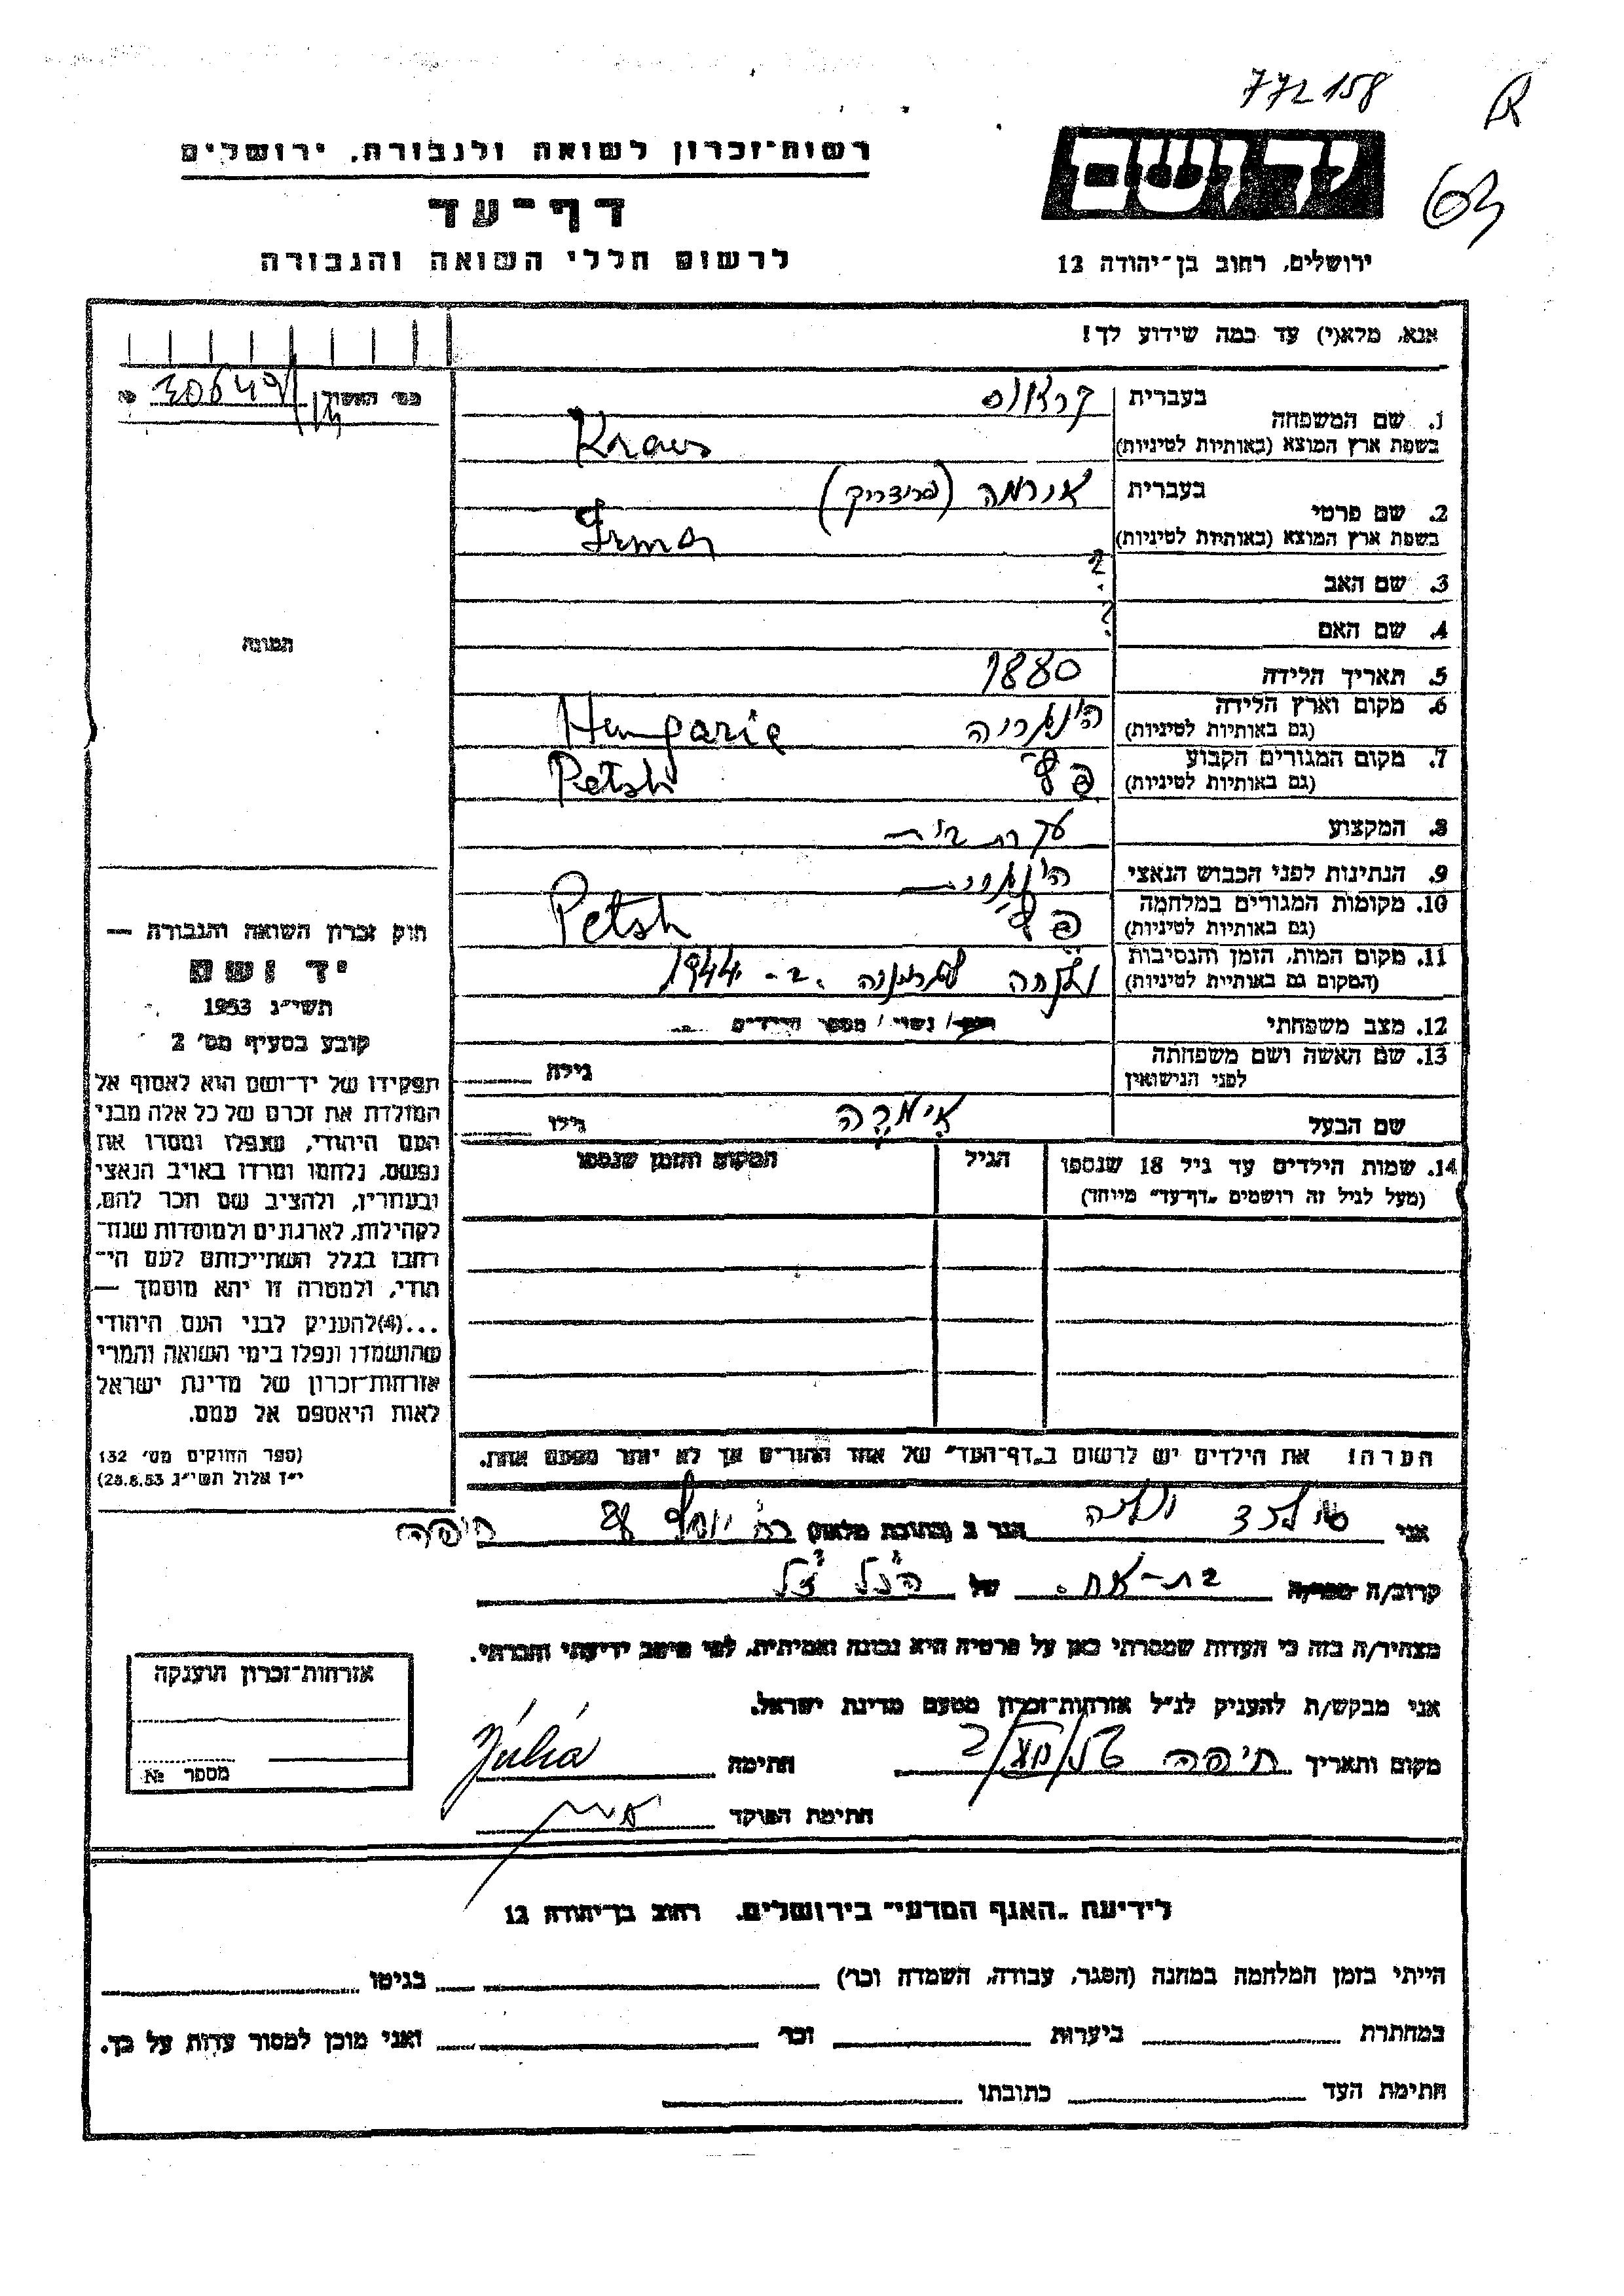 772158
R
רשות־זכרון לשואה ולגבורה, ירושלים
יד ושם
דף־עד
לרשום חללי השואה והגבורה
ירושלים, רחוב בן־יהודה 12
אנא, מלא(י) עד כמה שידוע לך!
מס׳ האשור
1. שם המשפחה
בעברית
קראוס
בשפת ארץ המוצא (באותיות לטיניות)
Kraus
2. שם פרטי
בעברית
אירמה
בשפת ארץ המוצא (באותיות לטיניות)
Irma
3. שם האב ?
4. שם האם ?
תמונה
5. תאריך הלידה 1880
6. מקום וארץ הלידה
(גם באותיות לטיניות)
הונגריה Hungarie
7. מקום המגורים הקבוע
(גם באותיות לטיניות)
Petsh
8. המקצוע עקרת בית
9. הנתינות לפני הכבוש הנאצי הונגרית
10. מקומות המגורים במלחמה
(גם באותיות לטיניות)
Petsh
11. מקום המות, הזמן והנסיבות
(המקום גם באותיות לטיניות)
1944
12. מצב משפחתי
רווק / נשוי / מספר הילדים
13. שם האשה ושם משפחתה
לפני הנישואין
גילה
שם הבעל
גילו
14. שמות הילדים עד גיל 18 שנספו
(מעל לגיל זה רושמים „דף־עד״ מיוחד)
הגיל
המקום והזמן שנספו
חוק זכרון השואה והגבורה —
יד ושם
תשי״ג 1953
קובע בסעיף מס׳ 2
תפקידו של יד־ושם הוא לאסוף אל
המולדת את זכרם של כל אלה מבני
העם היהודי, שנפלו ומסרו את
נפשם, נלחמו ומרדו באויב הנאצי
ובעוזריו, ולהציב שם וזכר להם,
לקהילות, לארגונים ולמוסדות שנח־
רבו בגלל השתייכותם לעם הי־
הודי, ולמטרה זו יהא מוסמך —
...(4)להעניק לבני העם היהודי
שהושמדו ונפלו בימי השואה והמרי
אזרחות־זכרון של מדינת ישראל
לאות היאספם אל עמם.
(ספר החוקים מס׳ 132
י״ז אלול תשי״ג 28.8.53)
הערה! את הילדים יש לרשום ב„דף־העד״ של אחד ההורים אך לא יותר מפעם אחת.
אני
הגר ב (כתובת מלאה) חיפה
קרוב/ה מכר/ה בת-אח. של הנ״ל ז״ל
מצהיר/ה בזה כי העדות שמסרתי כאן על פרטיה היא נכונה ואמיתית, לפי מיטב ידיעתי והכרתי.
אני מבקש/ת להעניק לנ״ל אזרחות־זכרון מטעם מדינת ישראל.
מקום ותאריך חיפה
חתימה Júlia
חתימת הפוקד
אזרחות־זכרון הוענקה
מספר №
לידיעת „האגף המדעי״ בירושלים. רחוב בן־יהודה 12
הייתי בזמן המלחמה במחנה (הסגר, עבודה, השמדה וכו׳) בגיטו
במחתרת ביערות וכו׳ ואני מוכן למסור עדות על כך.
חתימת העד כתובתו